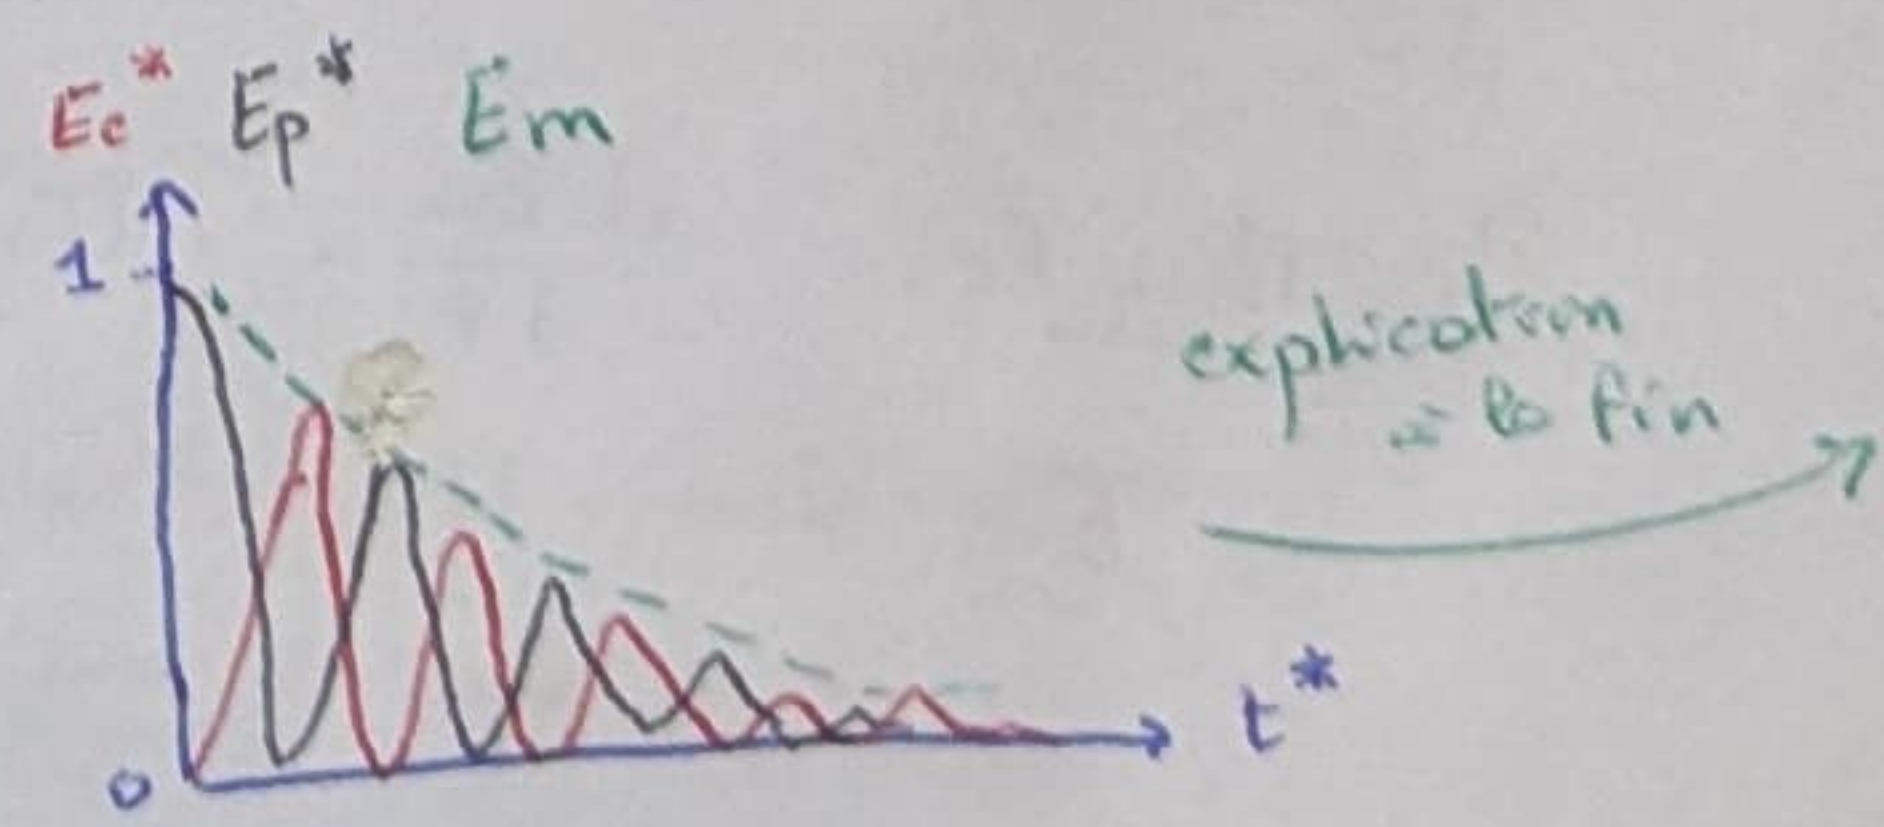 Ec* Ep* Em
1
explication
à la fin
t*
0